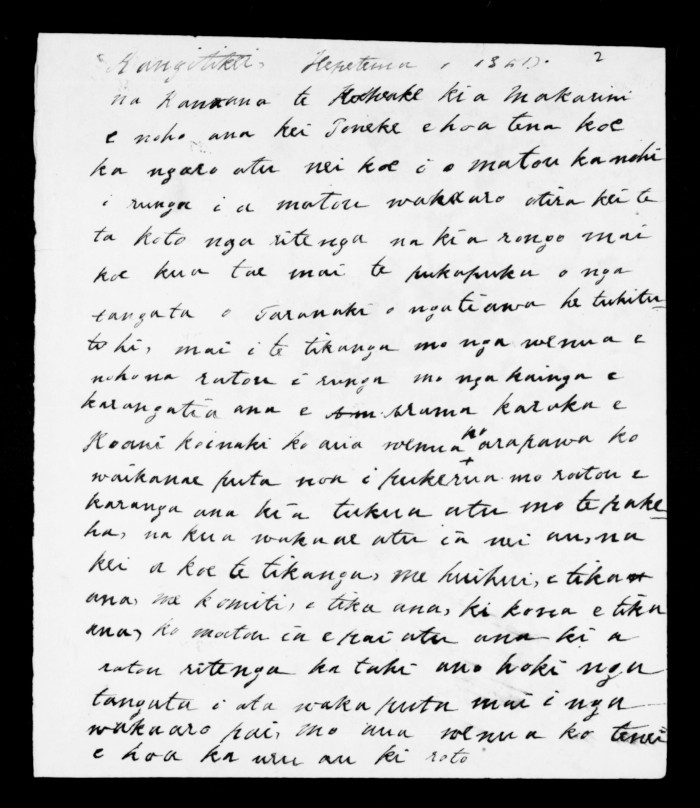 Rangitikei, Hepetema 1 2
na Kanana te Hoheake ki a Makarini
e noho ana kei Poneke e hoa tena koe
ka ngaro atu nei koe i o matou kanohi
i runga i a matou wakaaro otira kei te
ta koto nga ritenga na kia rongo mai
koe kua tae mai te pukapuka o nga
tangata o Taranaki o ngatiawa he tuhitu-
tohi, mai i te tikanga mo nga wenua e
nohona ratou i runga mo nga kainga e
karangatia ana e Arama karaka e
Hoani koinaki ko aua wenua ko arapawa ko
waikanae puta noa i pukerua mo ratou e
karanga ana kia tukua atu mo te pake-
ha, na kua wakaae atu ia nei au, na
kei a koe te tikanga, me huihui, e tika
ana, me komiti, e tika ana, ki kona e tika
ana, ko matou ia e pai atu ana ki a
ratou ritenga ka tahi ano hoki nga
tangata i ata waka puta mai i nga
wakaaro pai, mo aua wenua ko tenei
e hoa ka uru au ki roto